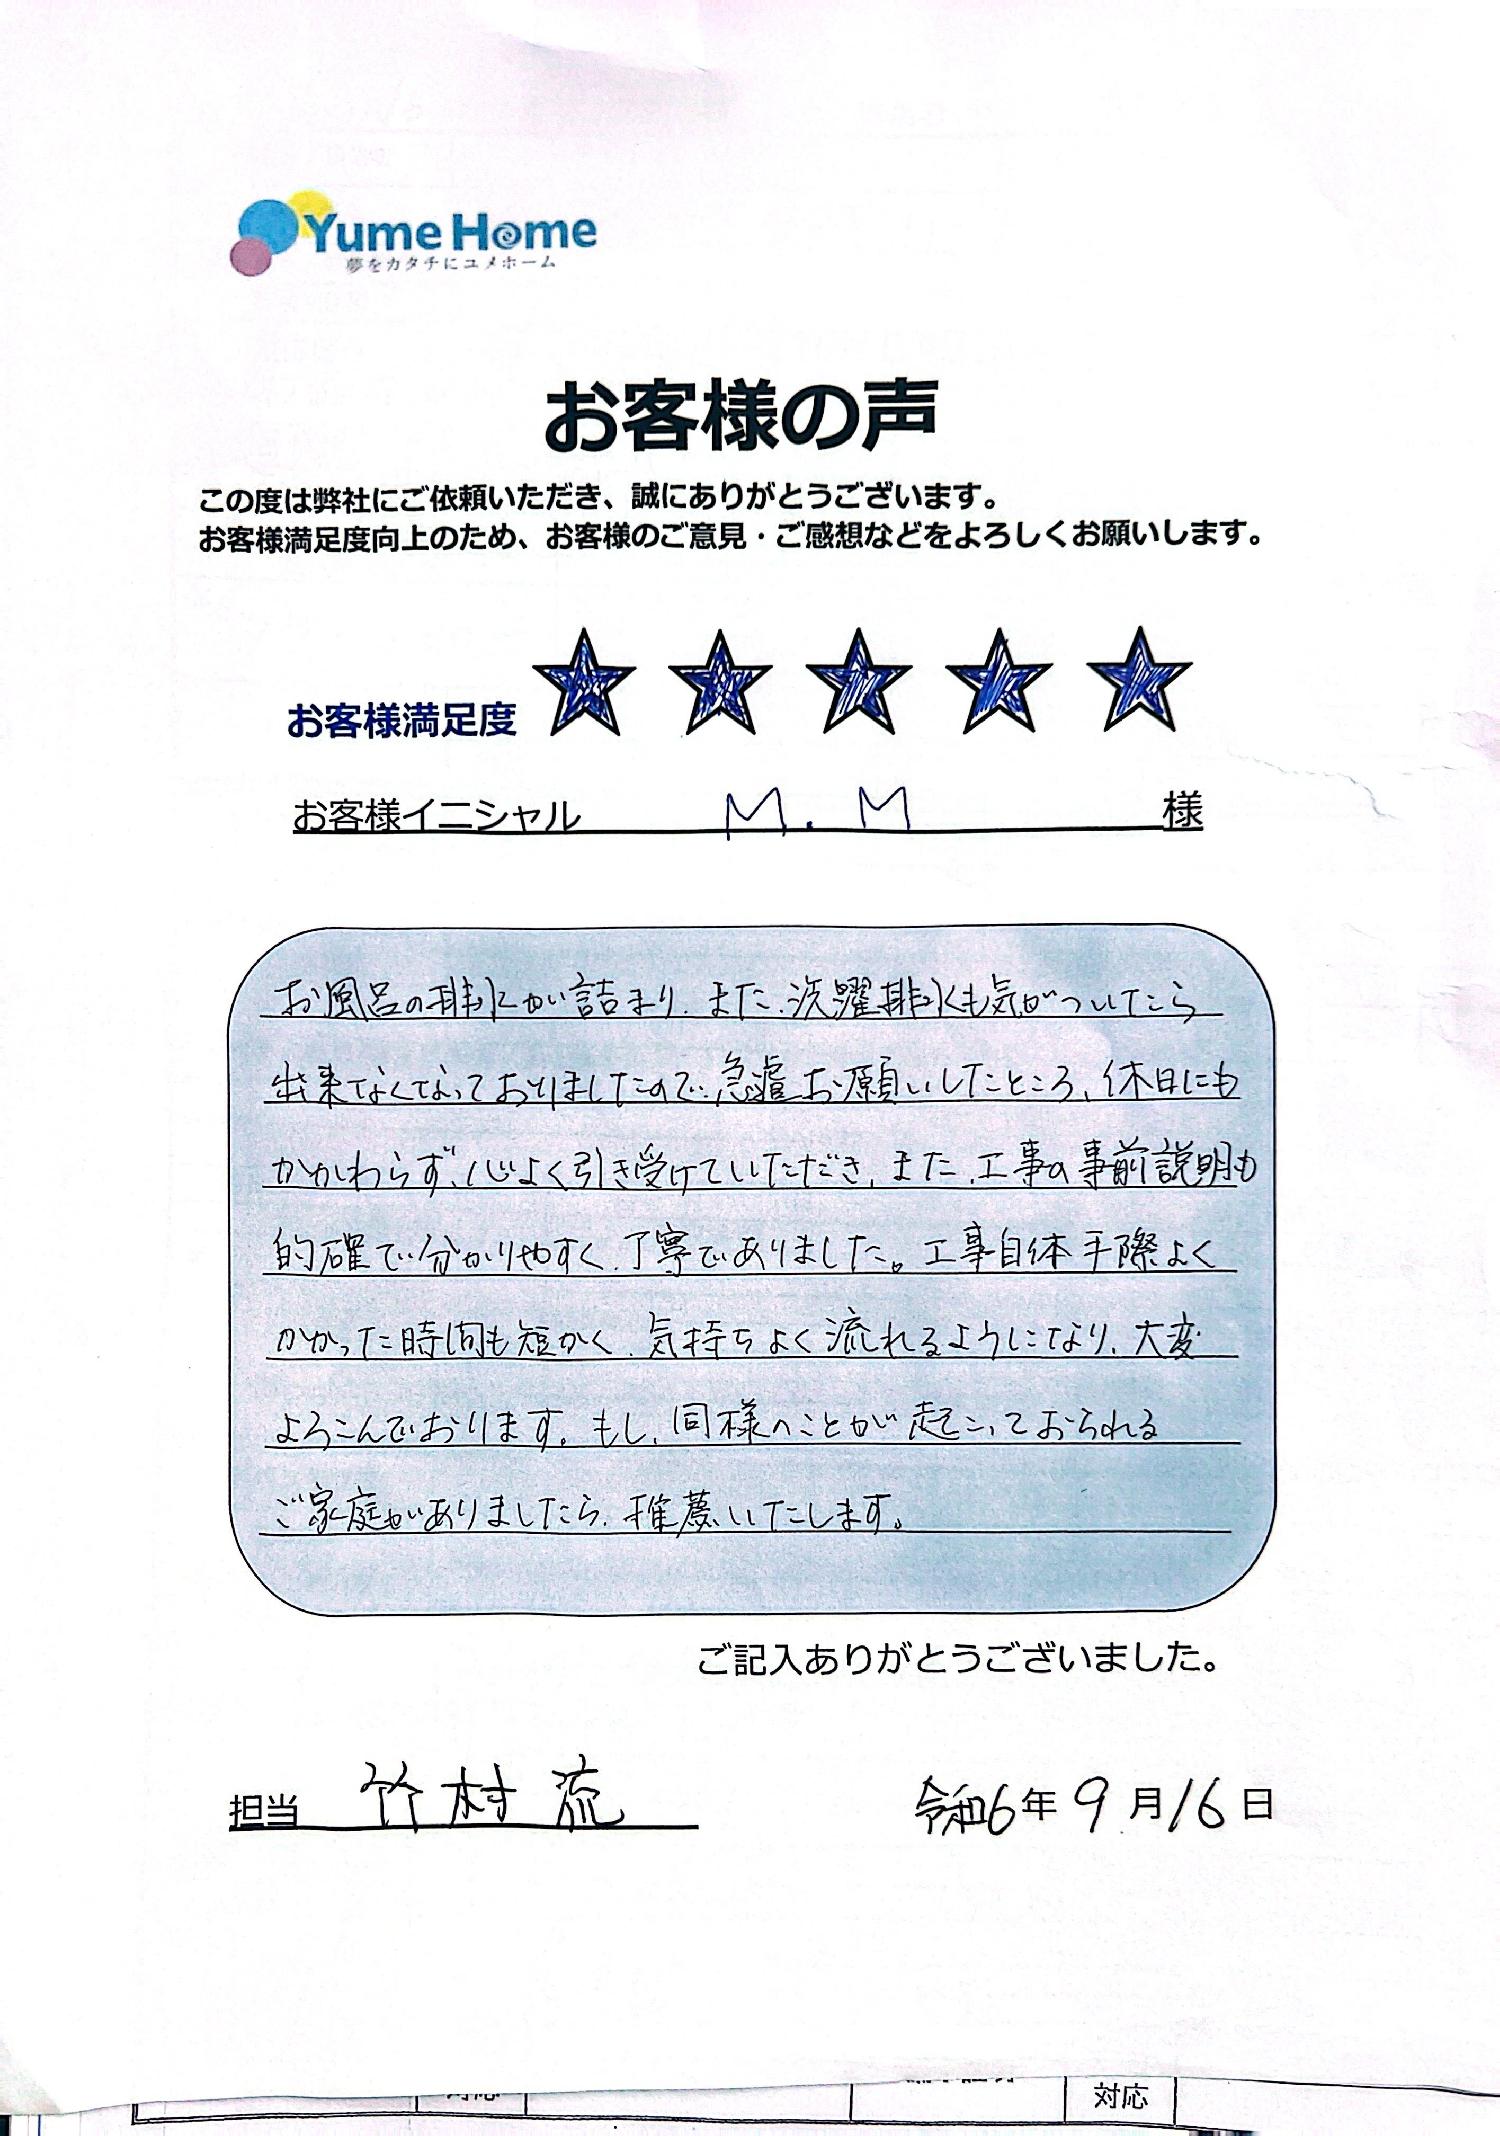 Yume Home
夢をカタチにユメホーム
お客様の声
この度は弊社にご依頼いただき、誠にありがとうございます。
お客様満足度向上のため、お客様のご意見・ご感想などをよろしくお願いします。
お客様満足度
お客様イニシャル M.M 様
お風呂の排水が詰まり、また、洗濯排水も気がついたら
出来なくなっておりましたので、急遽お願いしたところ、休日にも
かかわらず、心よく引き受けていただき、また、工事の事前説明も
的確で分かりやすく、丁寧でありました。工事自体手際よく
かかった時間も短かく、気持ちよく流れるようになり、大変
よろこんでおります。もし、同様のことが起こっておられる
ご家庭がありましたら、推薦いたします。
ご記入ありがとうございました。
担当 竹村 流
令和6年 9月16日
対応